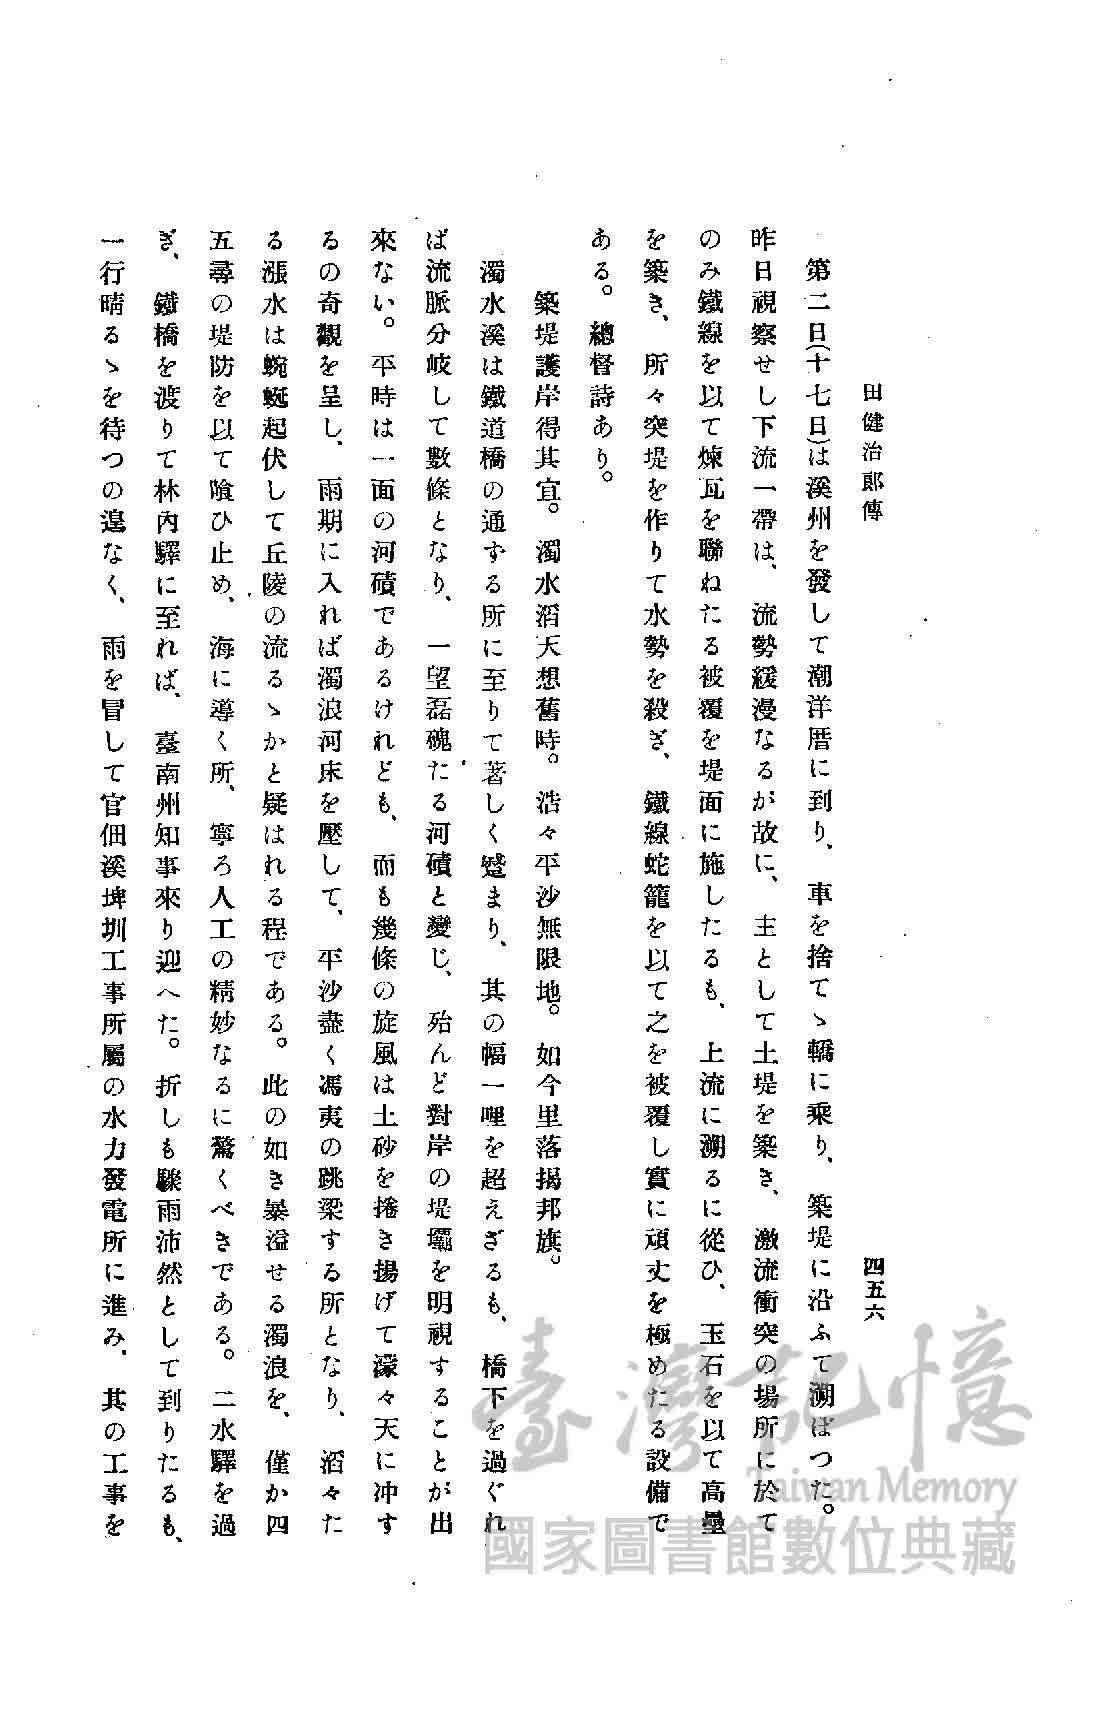 田健治郎傳
四五六
第二日(十七日)は溪州を發して潮洋厝に到り、車を捨てゝ轎に乘り、築堤に沿ふて溯ばつた。
昨日視察せし下流一帶は、流勢緩漫なるが故に、主として土堤を築き、激流衝突の場所に於て
のみ鐵線を以て煉瓦を聯ねたる被覆を堤面に施したるも、上流に溯るに從ひ、玉石を以て高壘
を築き、所々突堤を作りて水勢を殺ぎ、鐵線蛇籠を以て之を被覆し實に頑丈を極めたる設備で
ある。總督詩あり。
築堤護岸得其宜。濁水滔天想舊時。浩々平沙無限地。如今里落揭邦旗。
濁水溪は鐵道橋の通ずる所に至りて著しく蹙まり、其の幅一哩を超えざるも、橋下を過ぐれ
ば流脈分岐して數條となり、一望磊磈たる河磧と變じ、殆んど對岸の堤壩を明視することが出
來ない。平時は一面の河磧であるけれども、而も幾條の旋風は土砂を捲き揚げて濛々天に冲す
るの奇觀を呈し、雨期に入れば濁浪河床を壓して、平沙盡く馮夷の跳梁する所となり、滔々た
る漲水は蜿蜒起伏して丘陵の流るゝかと疑はれる程である。此の如き暴溢せる濁浪を、僅か四
五尋の堤防を以て喰ひ止め、海に導く所、寧ろ人工の精妙なるに驚くべきである。二水驛を過
ぎ、鐵橋を渡りて林內驛に至れば、臺南州知事來り迎へた。折しも驟雨沛然として到りたるも、
一行晴るゝを待つの遑なく、雨を冒して官佃溪埤圳工事所屬の水力發電所に進み、其の工事を
臺灣記憶
Taiwan Memory
國家圖書館數位典藏